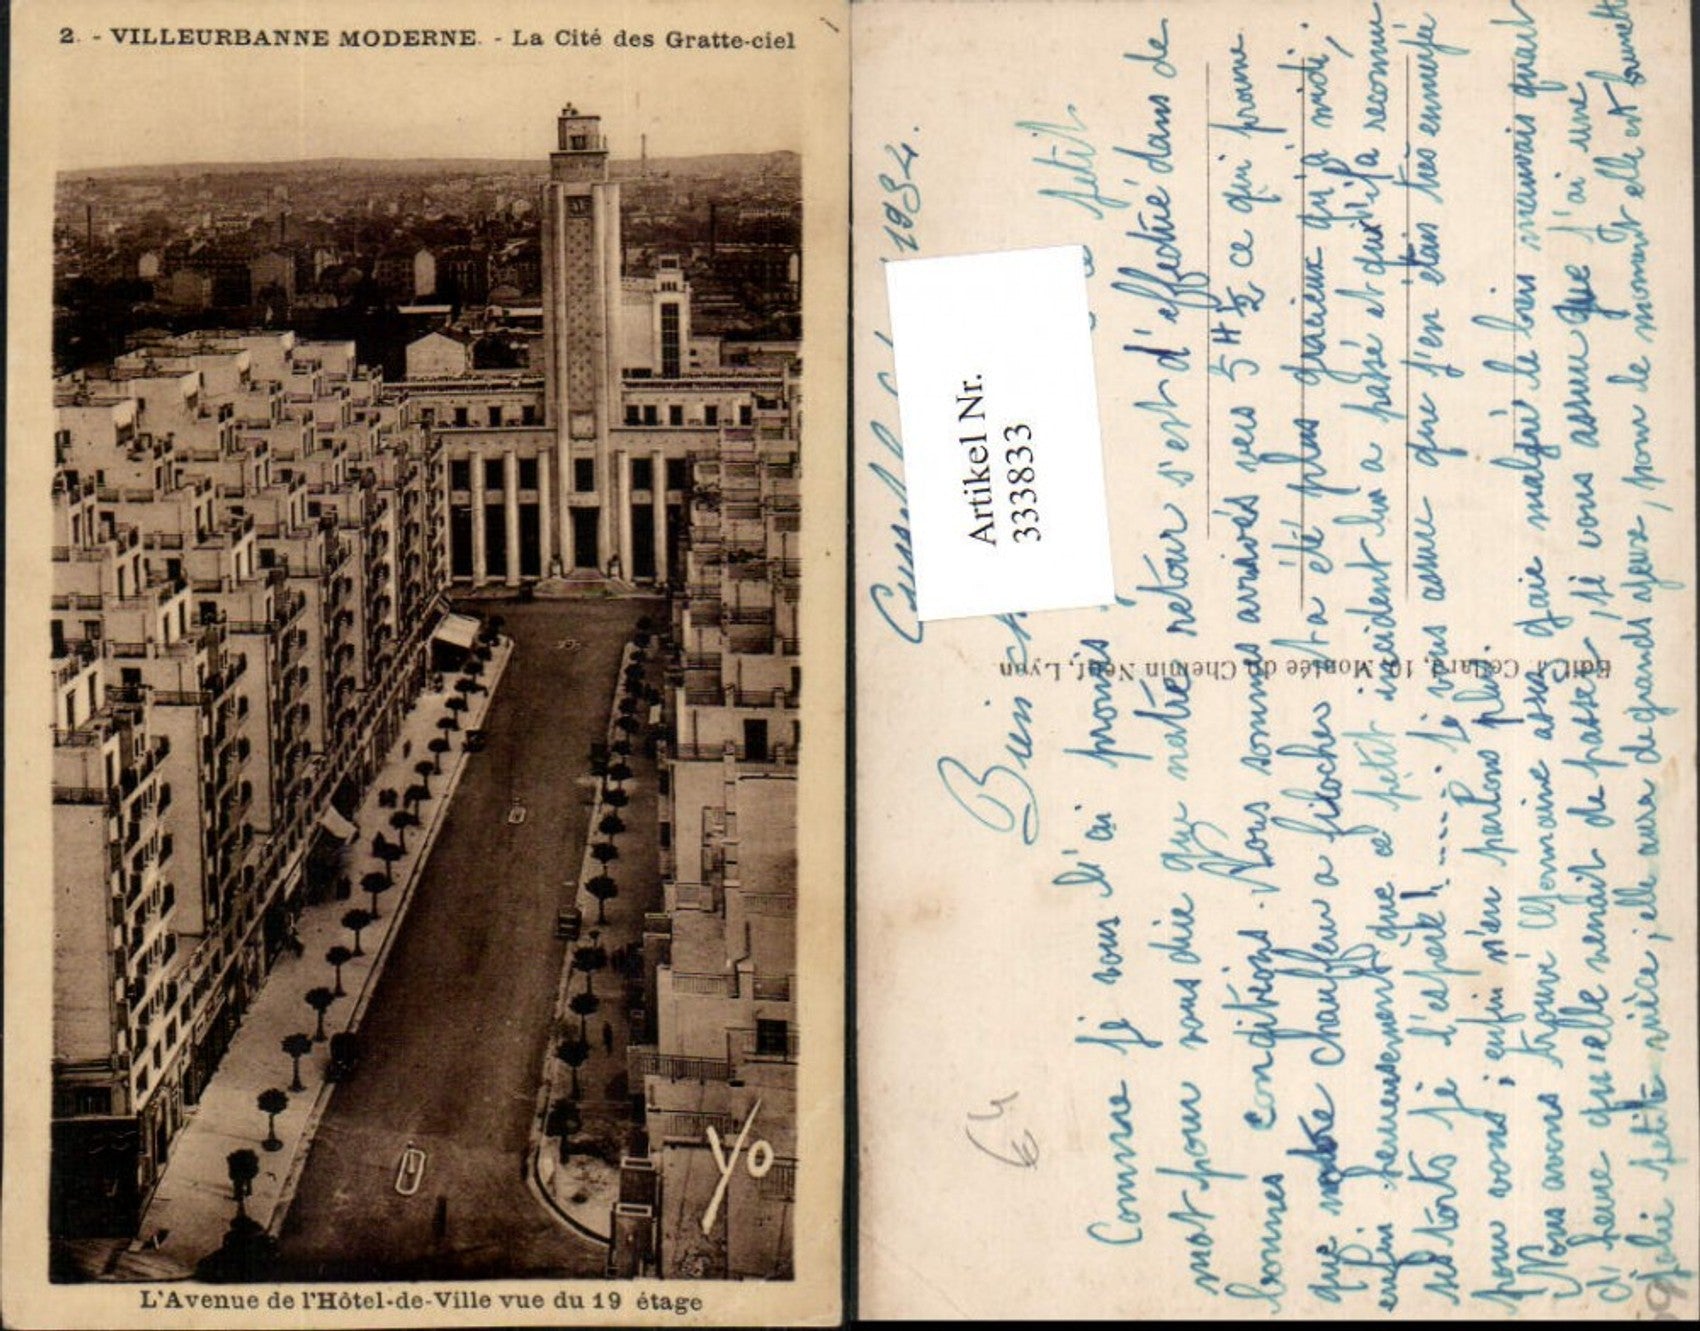 2. - VILLEURBANNE MODERNE. - La Cité des Gratte-ciel
Yo
L'Avenue de l'Hôtel-de-Ville vue du 19 étage
Artikel Nr.
3338833
Bien
Comme je vous l'ai promis petit
mot pour vous dire que notre retour s'est d'effectué dans de
bonnes conditions. Nous sommes arrivés vers 5 H ½ ce qui prouve
que notre chauffeur a été plus gracieux qu'à midi;
enfin heureusement que ce petit incident lui a passé et qu'il a reconnu
ses torts je l'espère! ..... je vous assure que j'en étais très ennuyée
pour vous; enfin n'en parlons plus.
Nous avons trouvé Germaine assez gaie malgré le bien mauvais quart
d'heure qu'elle venait de passer; je vous assure que j'ai une
jolie petite nièce; elle aura de grands yeux, pour le moment elle est brunette
Edit. J. Cellard, 10, Montée du Chemin Neuf, Lyon